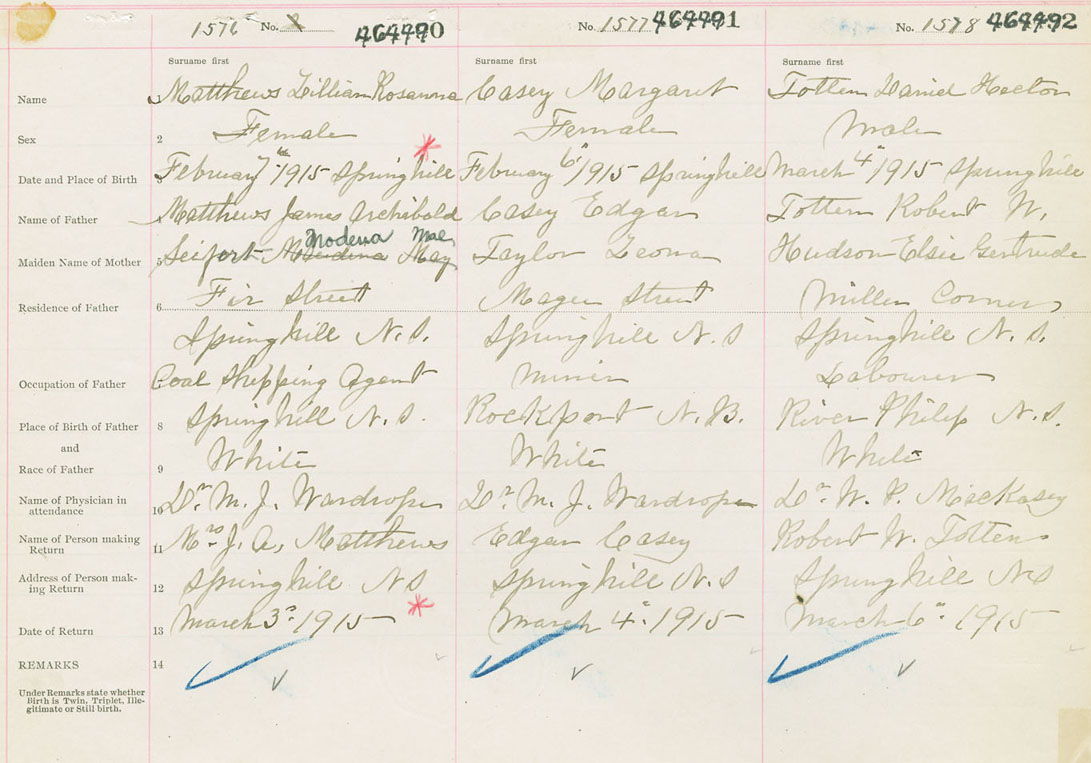 1576 No. 464490 No. 1577 464491 No. 1578 464492
Surname first Surname first Surname first
Name Matthews Lillian Rosanna Casey Margaret Totten Daniel Hector
Sex 2 Female Female Male
Date and Place of Birth 3 February 7th 1915 Springhill February 6" 1915 Springhill March 4" 1915 Springhill
Name of Father Matthews James Archibald Casey Edgar Totten Robert W.
Modena Mae
Maiden Name of Mother 5 Seifort May Taylor Leona Hudson Elsie Gertrude
Residence of Father 6 Fir Street Magee Street Millen Corner
Springhill N.S. Springhill N.S Springhill N.S.
Occupation of Father Coal Shipping Agent Miner Labourer
Place of Birth of Father 8 Springhill N.S. Rockport N.B. River Philip N.S.
and
Race of Father 9 White White White
Name of Physician in attendance 10 Dr M. J. Wardrope Dr M. J. Wardrope Dr W. P.
Name of Person making Return 11 Mrs J. A. Matthews Edgar Casey Robert W. Totten
Address of Person mak-ing Return 12 Springhill NS Springhill N.S Springhill NS
Date of Return 13 March 3" 1915 March 4" 1915 March 6" 1915
REMARKS 14
Under Remarks state whether
Birth is Twin, Triplet, Ille-
gitimate or Still birth.